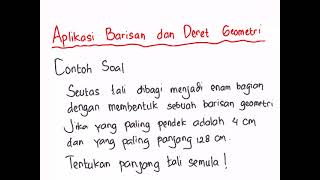 Aplikasi Barisan dan Deret Geometri
Contoh Soal
Seutas tali dibagi menjadi enam bagian
dengan membentuk sebuah barisan geometri
Jika yang paling pendek adalah 4 cm
dan yang paling panjang 128 cm.
Tentukan panjang tali semula!